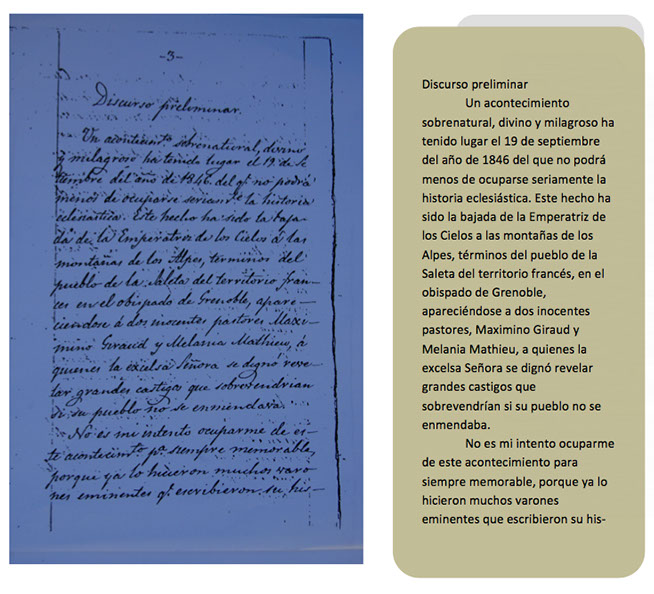 -3-
Discurso preliminar.
Un acontecim.to sobrenatural, divino
y milagroso ha tenido lugar el 19 de se
tiembre del año de 1846 del q.e no podrá
menos de ocuparse seriam.te la historia
eclesiastica. Este hecho ha sido la baja-
da de la Emperatriz de los Cielos á las
montañas de los Alpes, terminos del
pueblo de la Saleta del territorio fran-
ces en el obispado de Grenoble, apare-
ciendose á dos inocentes pastores Maxi-
mino Giraud y Melania Mathieu, á
quienes la excelsa Señora se dignó reve-
lar grandes castigos que sobrevendrian
si su pueblo no se enmendava.
No es mi intento ocuparme de es-
te acontecim.to p.a siempre memorable,
porque ya lo hicieron muchos varo-
nes eminentes q.e escribieron su his-
Discurso preliminar
Un acontecimiento
sobrenatural, divino y milagroso ha
tenido lugar el 19 de septiembre
del año de 1846 del que no podrá
menos de ocuparse seriamente la
historia eclesiástica. Este hecho ha
sido la bajada de la Emperatriz de
los Cielos a las montañas de los
Alpes, términos del pueblo de la
Saleta del territorio francés, en el
obispado de Grenoble,
apareciéndose a dos inocentes
pastores, Maximino Giraud y
Melania Mathieu, a quienes la
excelsa Señora se dignó revelar
grandes castigos que
sobrevendrían si su pueblo no se
enmendaba.
No es mi intento ocuparme
de este acontecimiento para
siempre memorable, porque ya lo
hicieron muchos varones
eminentes que escribieron su his-